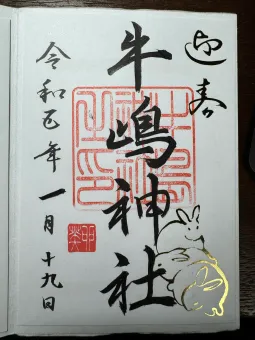 迎春
牛嶋神社
令和五年一月十九日